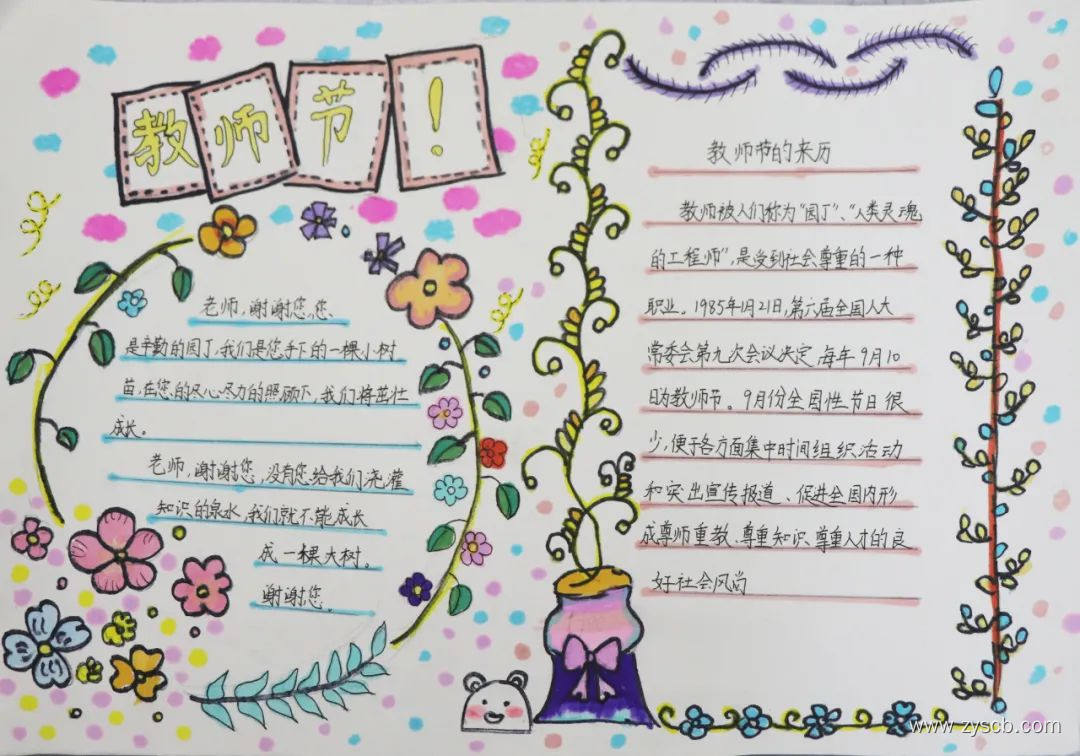 教师节！
老师,谢谢您,您
是辛勤的园丁,我们是您手下的一棵小树
苗,在您的尽心尽力的照顾下,我们将茁壮
成长。
老师,谢谢您,没有您给我们浇灌
知识的泉水,我们就不能成长
成一棵大树。
谢谢您。
教师节的来历
教师被人们称为“园丁”、“人类灵魂
的工程师”,是受到社会尊重的一种
职业。1985年1月21日,第六届全国人大
常委会第九次会议决定每年9月10
日为教师节。9月份全国性节日很
少,便于各方面集中时间组织活动
和突出宣传报道、促进全国内形
成尊师重教、尊重知识、尊重人才的良
好社会风尚
www.zyscb.com